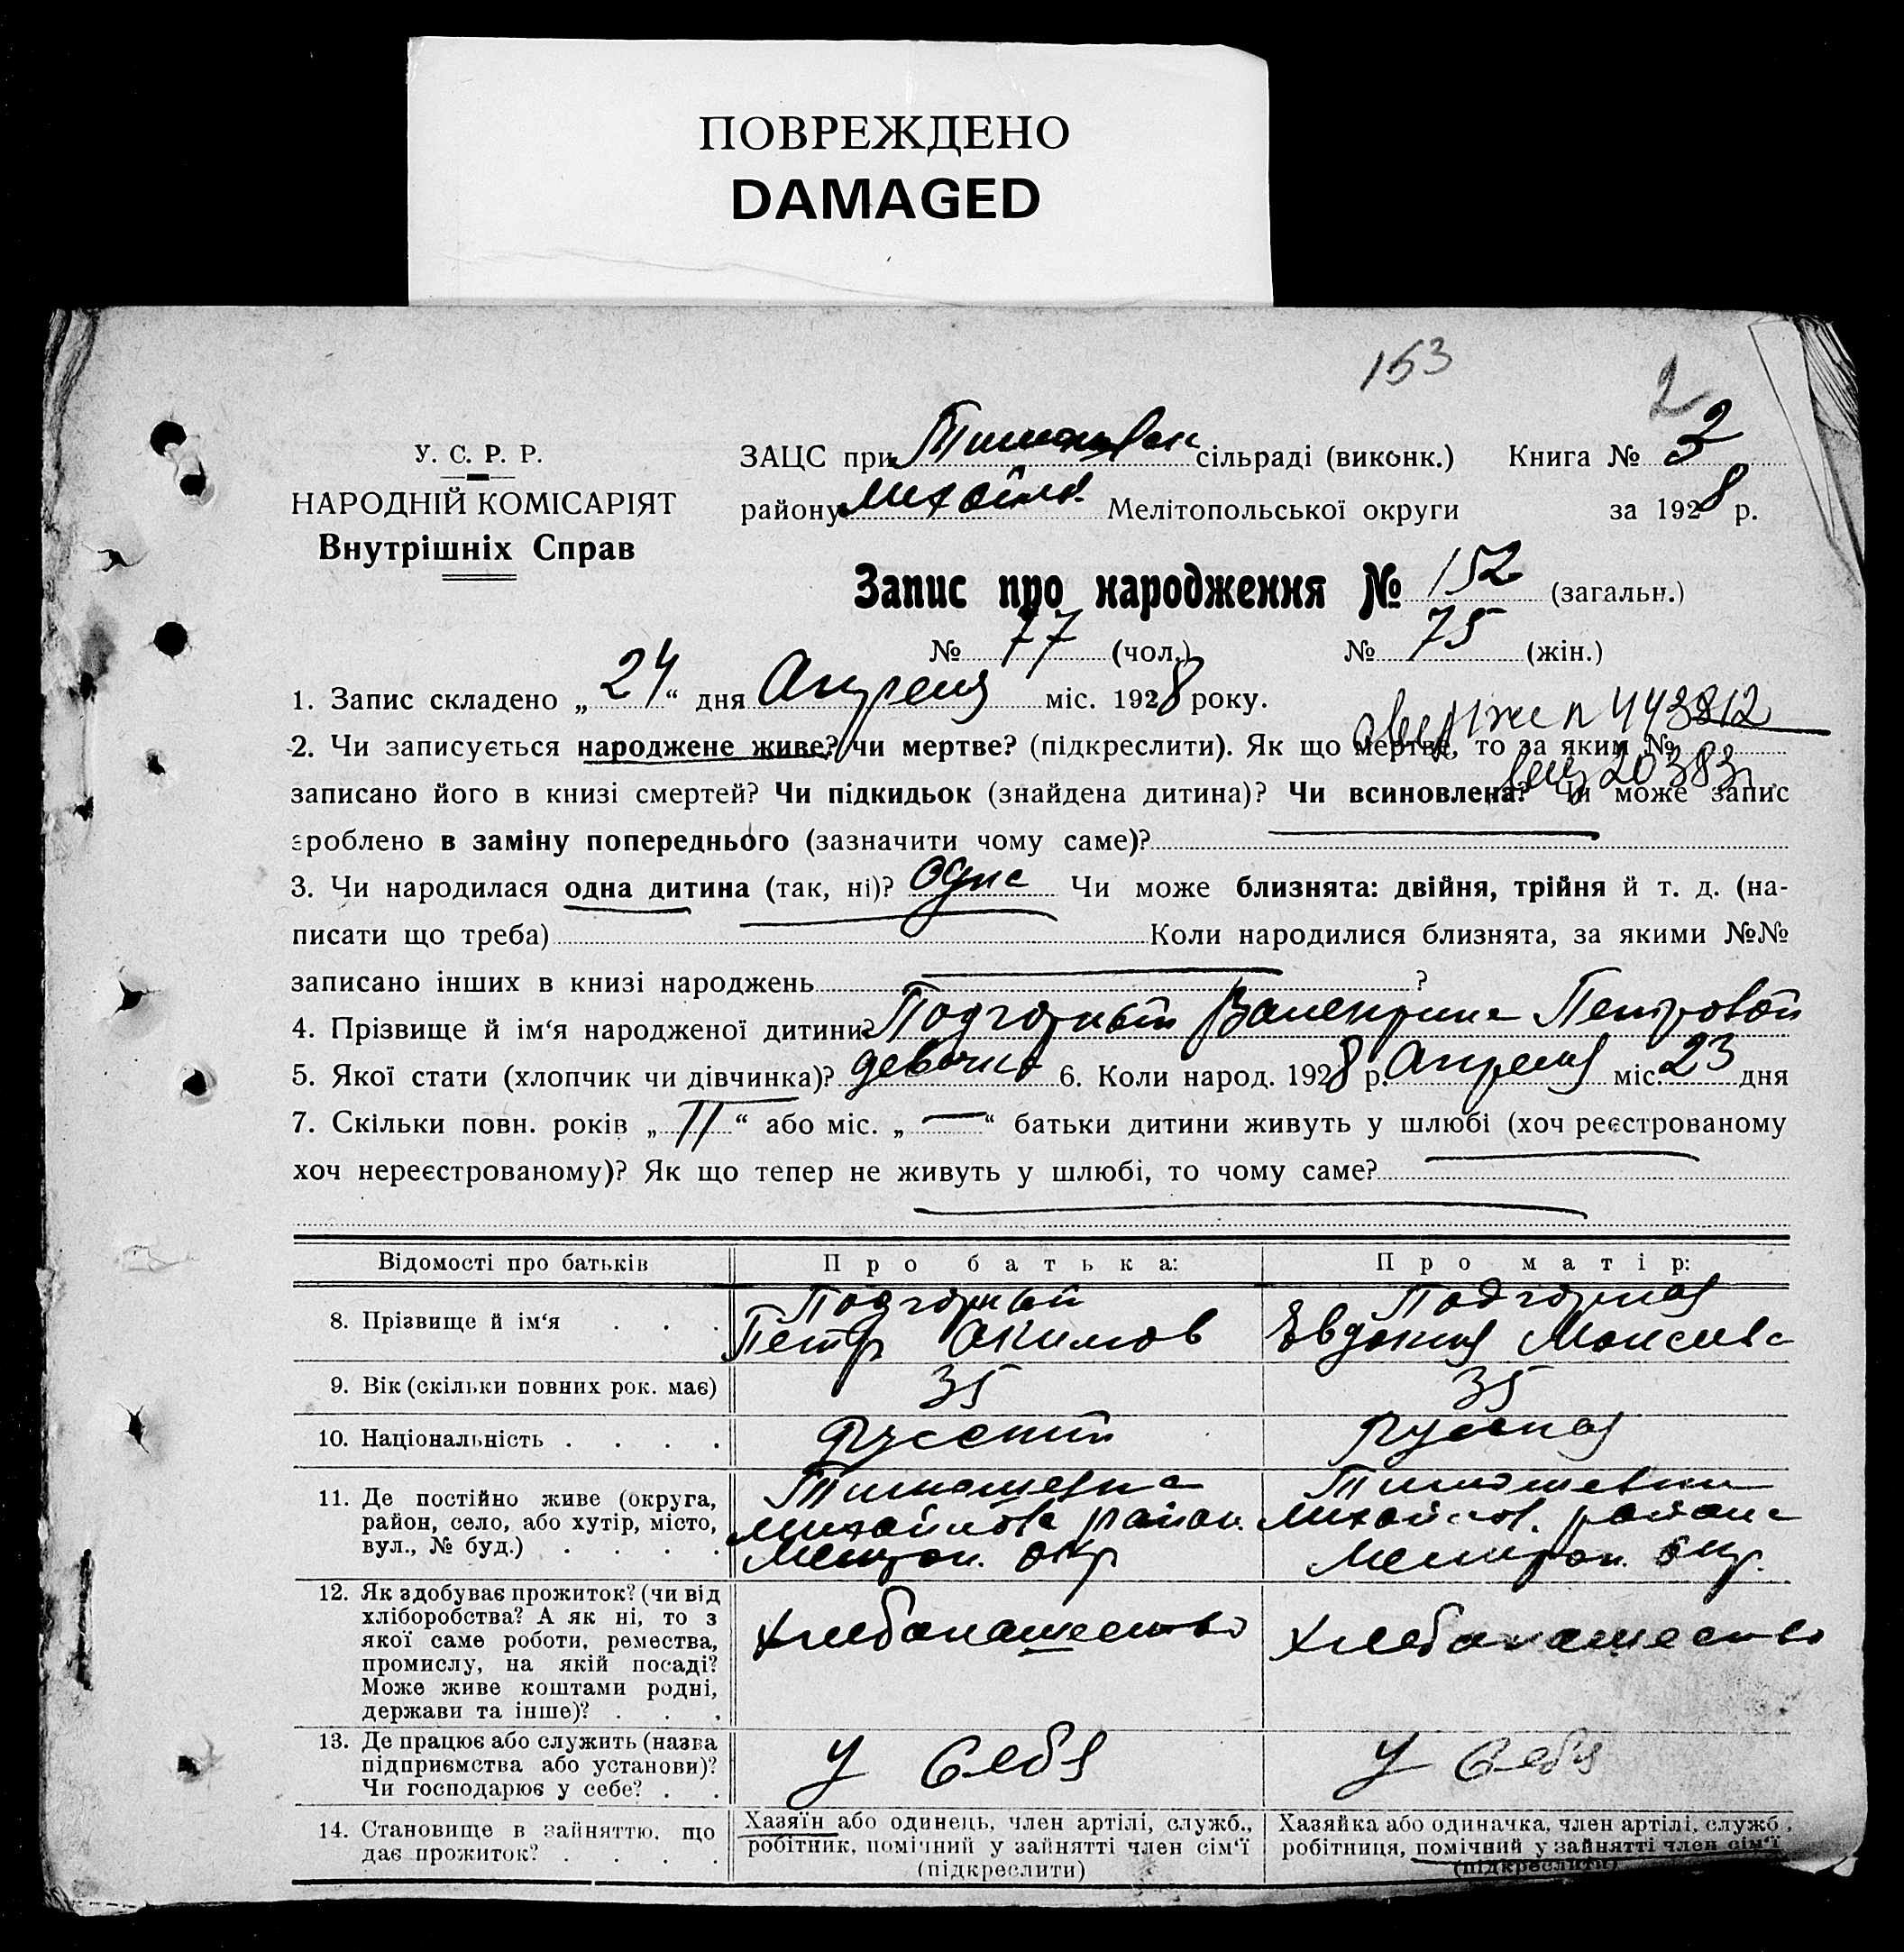 ПОВРЕЖДЕНО
DAMAGED
153
2
У. С. Р. Р.
НАРОДНІЙ КОМІСАРІЯТ
Внутрішніх Справ
ЗАЦС при Тимошевск сільраді (виконк.) Книга № 3
району Михайлов. Мелітопольської округи за 1928 р.
Запис про народження № 152 (загальн.)
№ 77 (чол.) № 75 (жін.)
1. Запис складено „ 24 “ дня Апреля міс. 1928 року.
443812
2. Чи записується народжене живе? чи мертве? (підкреслити). Як що мертве, то за яким №
20383
записано його в книзі смертей? Чи підкидьок (знайдена дитина)? Чи всиновлена? Чи може запис
зроблено в заміну попереднього (зазначити чому саме)?
3. Чи народилася одна дитина (так, ні)? одна Чи може близнята: двійня, трійня й т. д. (на-
писати що треба) Коли народилися близнята, за якими №№
записано інших в книзі народжень ?
4. Прізвище й ім‘я народженої дитини? Подгорный Валентина Петровой
5. Якої стати (хлопчик чи дівчинка)? девочка 6. Коли народ. 1928 р. Апреля міс. 23 дня
7. Скільки повн. років „ 11 “ або міс. „ — “ батьки дитини живуть у шлюбі (хоч реєстрованому
хоч нереєстрованому)? Як що тепер не живуть у шлюбі, то чому саме?
Відомості про батьків Про батька: Про матір:
8. Прізвище й ім‘я . . .
Подгорный
Петр Акимов
Подгорная
Евдокия Моисеева
9. Вік (скільки повних рок. має) 35 35
10. Національність . . . . Русский Русская
11. Де постійно живе (округа,
район, село, або хутір, місто,
вул., № буд.) . . . .
Тимошевка
Михайлова район.
Мелитоп. окр
Тимошевки
Михайлов. района
Мелитоп. окр.
12. Як здобуває прожиток? (чи від
хліборобства? А як ні, то з
якої саме роботи, ремества,
промислу, на якій посаді?
Може живе коштами родні,
держави та інше)? . . .
Хлебопашество
Хлебопашество
13. Де працює або служить (назва
підприємства або установи)?
Чи господарює у себе? . .
У Себя
У Себя
14. Становище в зайняттю, що
дає прожиток? . . . .
Хазяїн або одинець, член артілі, служб.,
робітник, помічний у зайнятті член сім‘ї
(підкреслити)
Хазяйка або одиначка, член артілі, служб.,
робітниця, помічний у зайнятті член сім‘ї
(підкреслити)